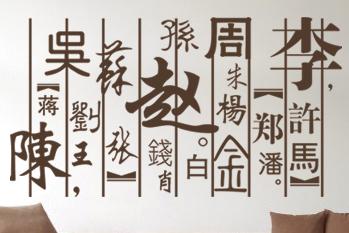 李，
許馬
【郑潘。
周
朱楊
金
孫
赵。白
錢肖
蘇
张】
劉王，
吳
【蒋
陳